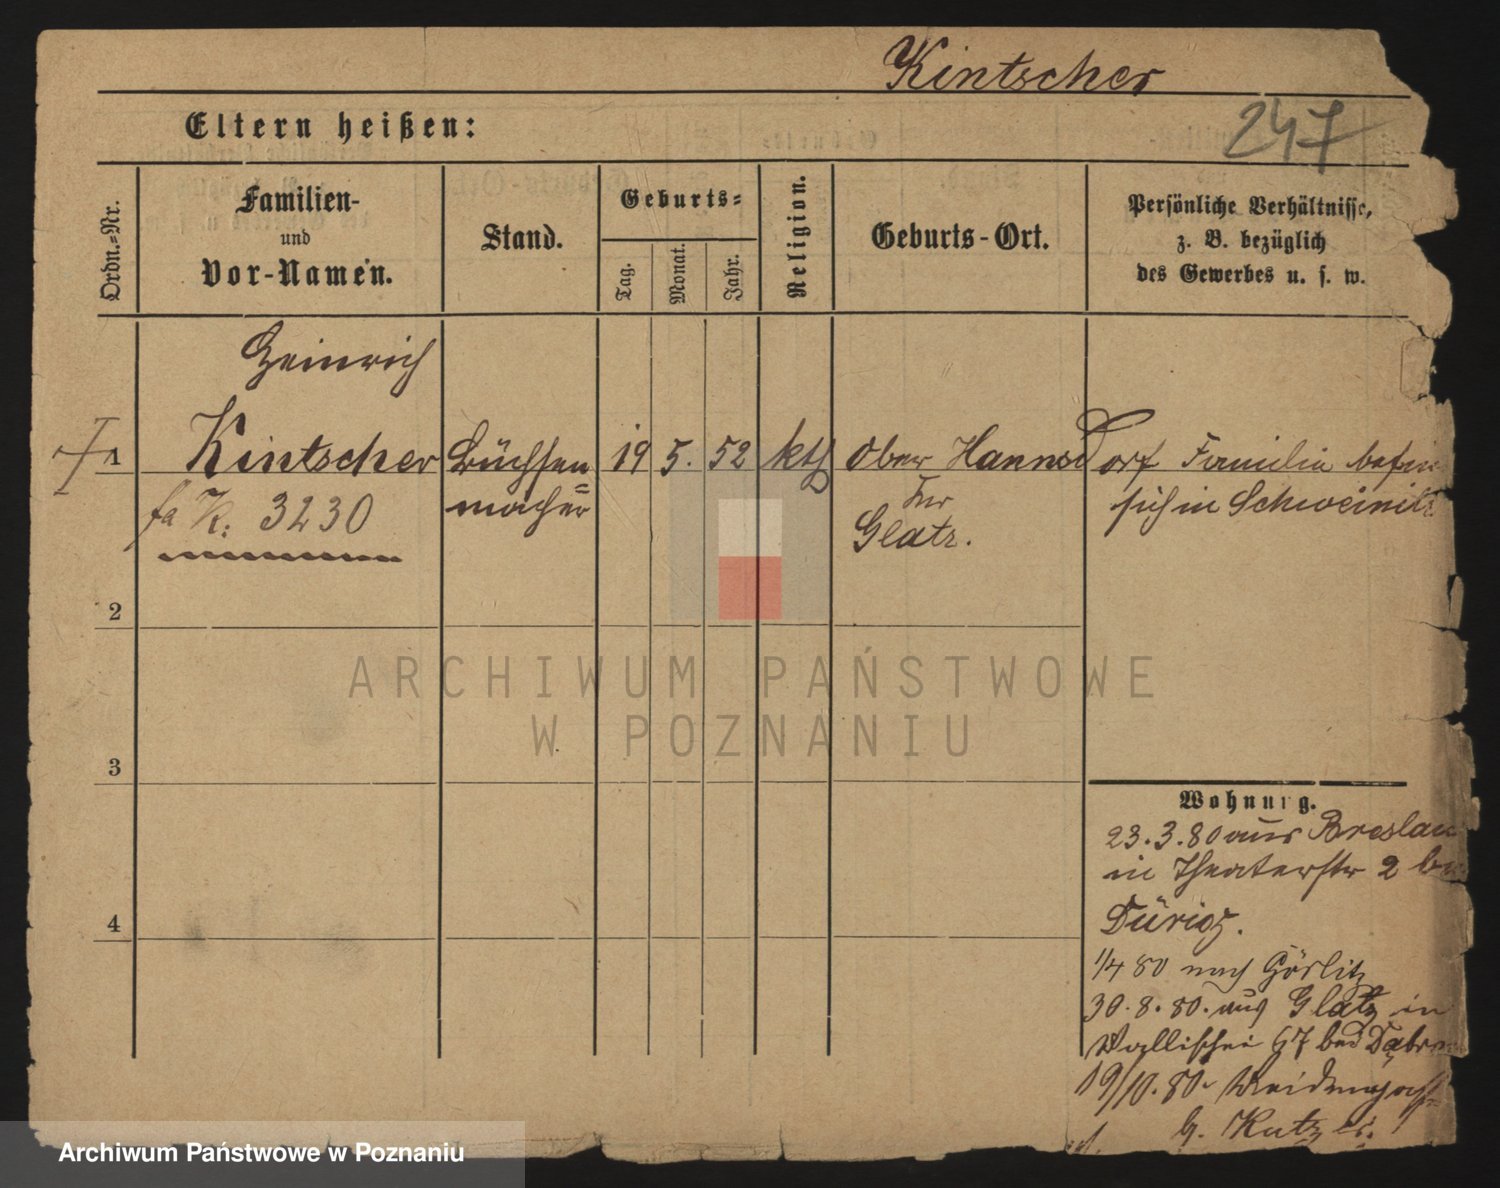 Kintscher
247
Eltern heißen:
Ordn.-Nr.
Familien-
und
Vor-Namen.
Stand.
Geburts-
Tag.
Monat.
Jahr.
Religion.
Geburts-Ort.
Persönliche Verhältnisse,
z. B. bezüglich
des Gewerbes u. s. w.
Heinrich
1 Kintscher Büchsen 19 5. 52 kth Ober Hannsdorf Familie
macher
fa K. 3230
Glatz.
sich in Schweinitz
2
3
4
ARCHIWUM PAŃSTWOWE
W POZNANIU
Wohnung.
23.3.80 aus Breslau
in Theaterstr 2
Dürig.
1/4 80 nach Görlitz
30.8.80. aus Glatz in
Wallischei 67 bei
19/10.80.
Archiwum Państwowe w Poznaniu